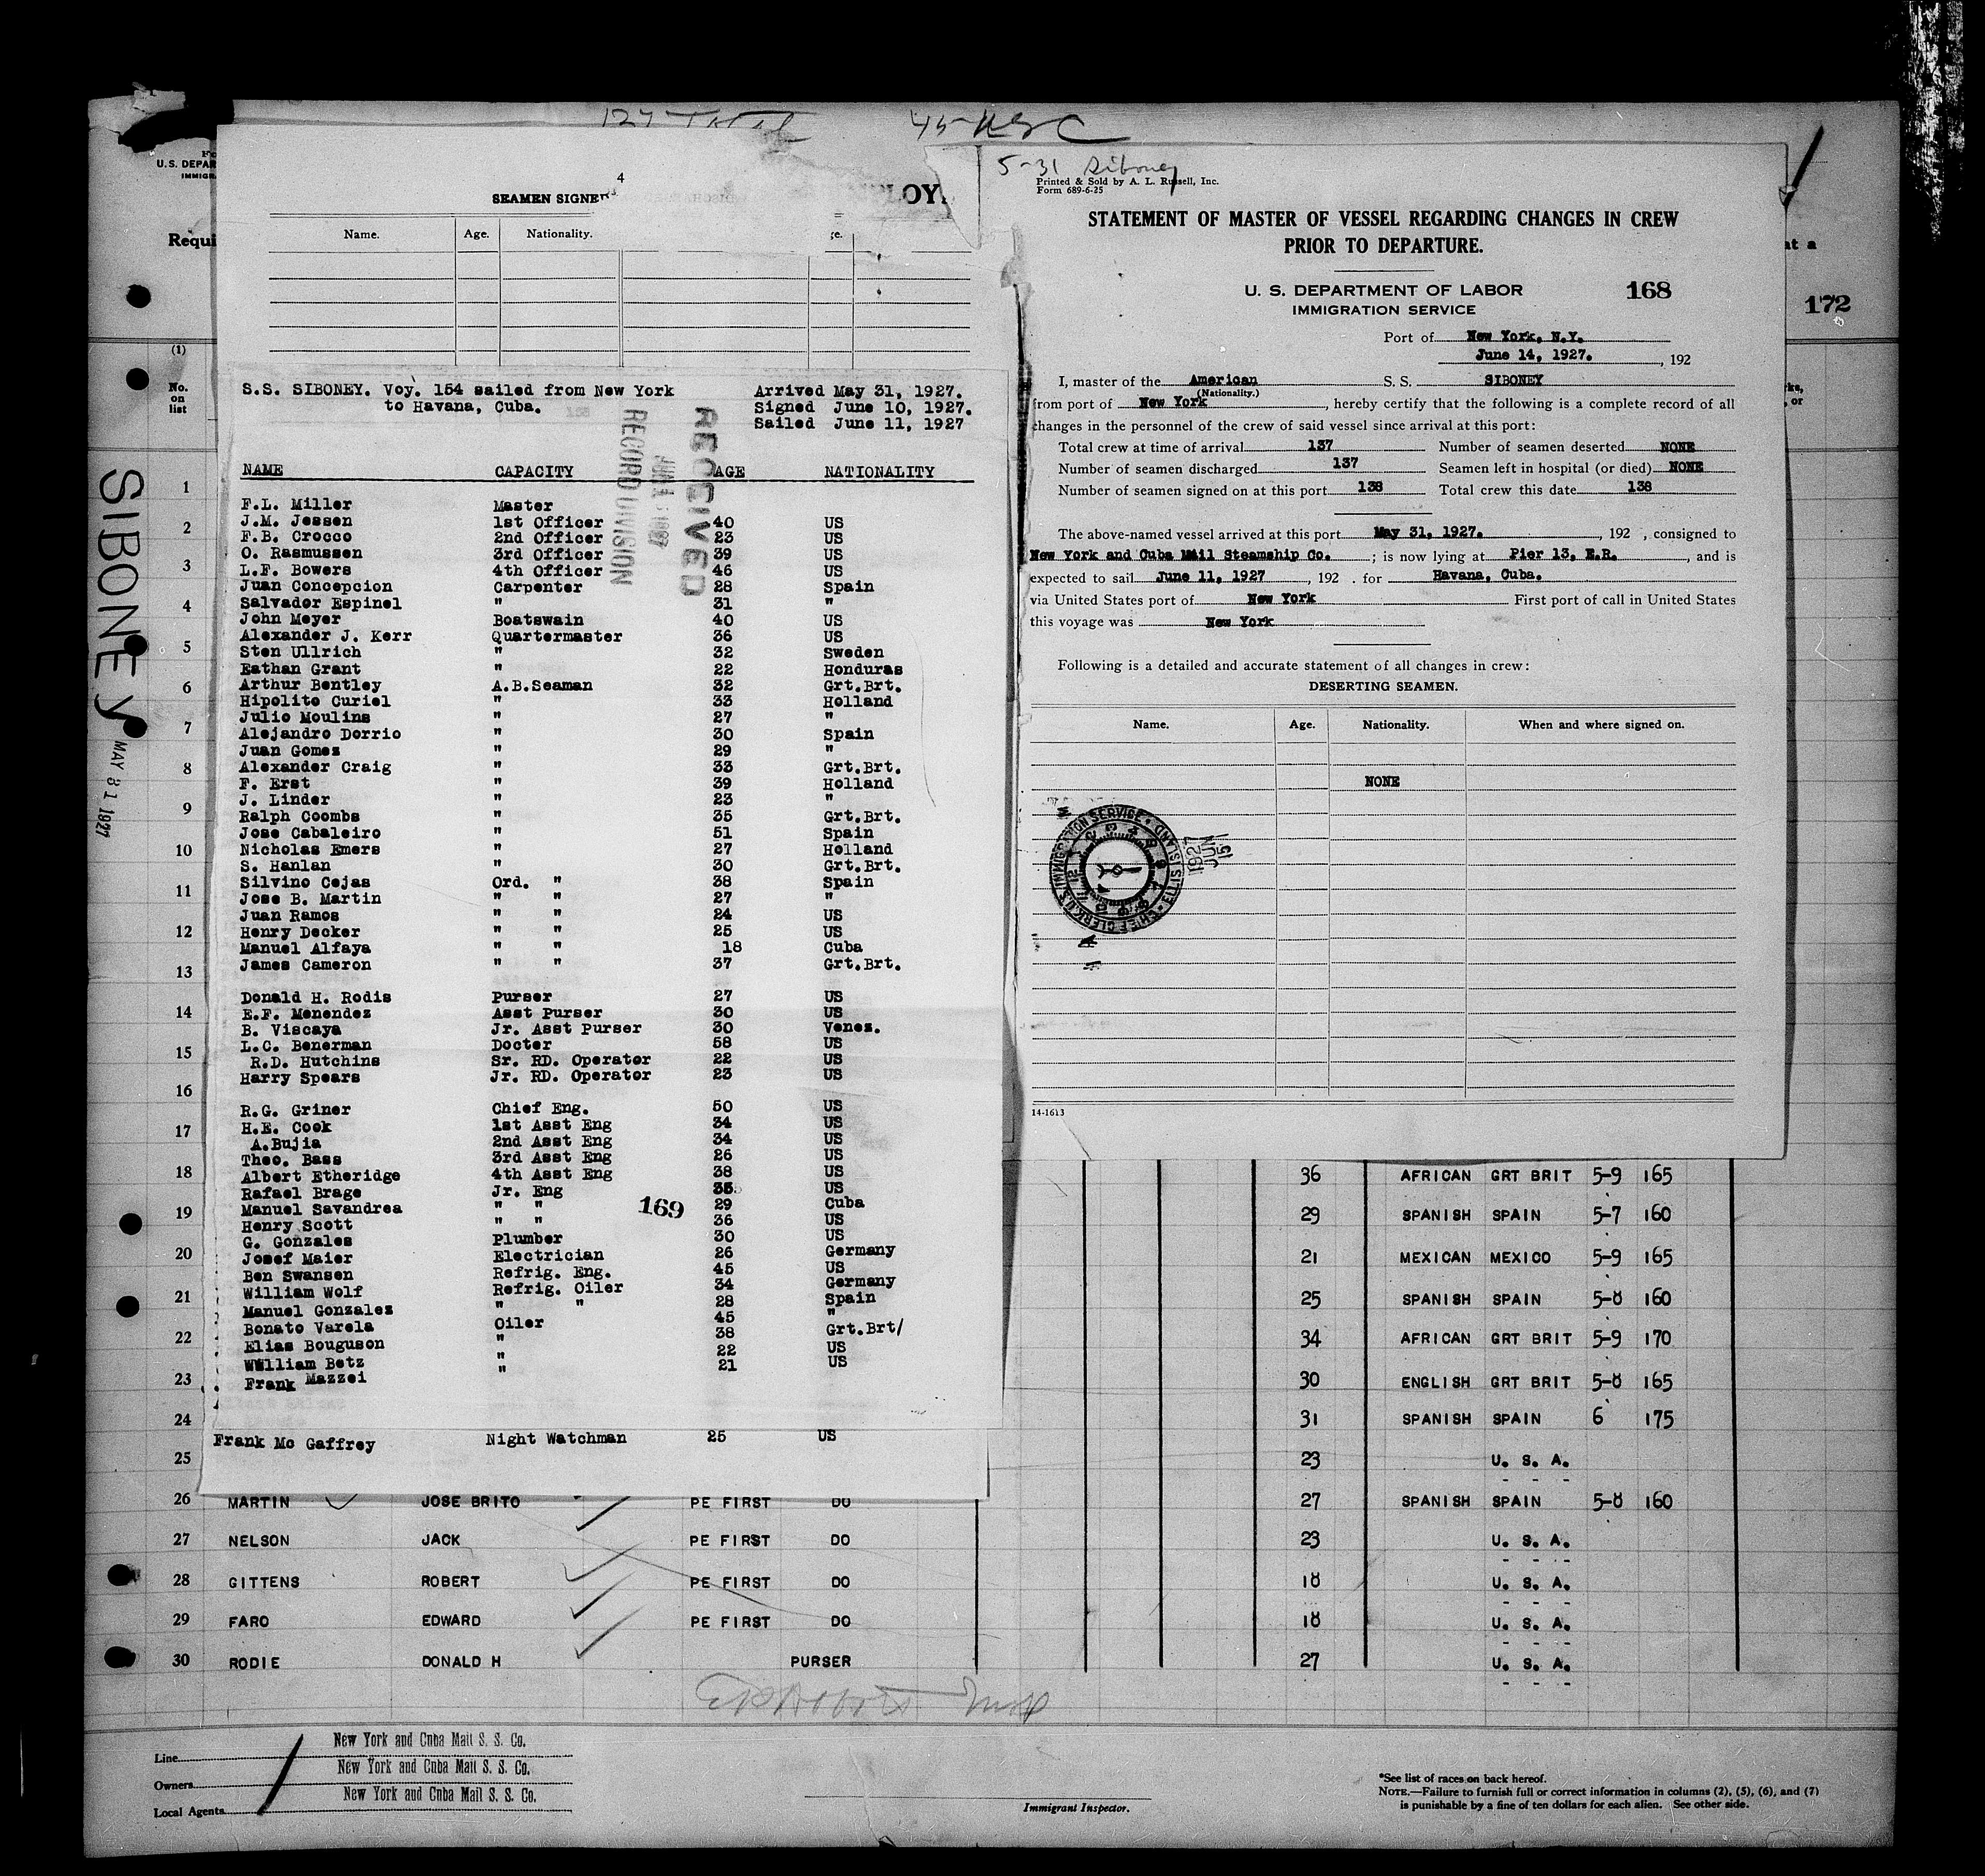 5-31 Siboney
Printed & Sold by A. L. Russell, Inc.
Form 689-6-25
STATEMENT OF MASTER OF VESSEL REGARDING CHANGES IN CREW
PRIOR TO DEPARTURE.
U. S. DEPARTMENT OF LABOR
IMMIGRATION SERVICE
168
172
Port of New York, N.Y.
June 14, 1927. , 192
I, master of the American S. S. SIBONEY
(Nationality.)
from port of New York , hereby certify that the following is a complete record of all
changes in the personnel of the crew of said vessel since arrival at this port:
Total crew at time of arrival 137 Number of seamen deserted NONE
Number of seamen discharged 137 Seamen left in hospital (or died) NONE
Number of seamen signed on at this port 138 Total crew this date 138
The above-named vessel arrived at this port May 31, 1927. , 192 , consigned to
New York and Cuba Mail Steamship Co. ; is now lying at Pier 13, E.R. , and is
expected to sail June 11, 1927 , 192 . for Havana, Cuba.
via United States port of New York First port of call in United States
this voyage was New York
Following is a detailed and accurate statement of all changes in crew:
DESERTING SEAMEN.
Name. Age. Nationality. When and where signed on.
NONE
CHIEF CLERK U.S. IMMIGRATION SERVICE ELLIS ISLAND
1927 JUN 15
14-1613
U. S. DEPAR
IMMIGR
Requi
4
SEAMEN SIGNE
PLOY
Name. Age. Nationality.
(1)
No. on list
SIBONEY
MAY 31 1927
S.S. SIBONEY. Voy. 154 sailed from New York Arrived May 31, 1927.
to Havana, Cuba. Signed June 10, 1927.
Sailed June 11, 1927
RECEIVED
RECORD DIVISION
NAME CAPACITY AGE NATIONALITY
F.L. Miller Master
J.M. Jessen 1st Officer 40 US
F.B. Crocco 2nd Officer 23 US
O. Rasmussen 3rd Officer 39 US
L.F. Bowers 4th Officer 46 US
Juan Concepcion Carpenter 28 Spain
Salvador Espinel " 31 "
John Meyer Boatswain 40 US
Alexander J. Kerr Quartermaster 36 US
Sten Ullrich " 32 Sweden
Eathan Grant " 22 Honduras
Arthur Bentley A.B.Seaman 32 Grt.Brt.
Hipolito Curiel " 33 Holland
Julio Moulins " 27 "
Alejandro Dorrio " 30 Spain
Juan Gomes " 29 "
Alexander Craig " 33 Grt.Brt.
F. Erst " 39 Holland
J. Linder " 23 "
Ralph Coombs " 35 Grt.Brt.
Jose Cabaleiro " 51 Spain
Nicholas Emers " 27 Holland
S. Hanlan " 30 Grt.Brt.
Silvino Cejas Ord. " 38 Spain
Jose B. Martin " " 27 "
Juan Ramos " " 24 US
Henry Decker " " 25 US
Manuel Alfaya " " 18 Cuba
James Cameron " " 37 Grt.Brt.
Donald H. Rodis Purser 27 US
E.F. Menendez Asst Purser 30 US
B. Viscaya Jr. Asst Purser 30 Venez.
L.C. Benerman Docter 58 US
R.D. Hutchins Sr. RD. Operator 22 US
Harry Spears Jr. RD. Operator 23 US
R.G. Griner Chief Eng. 50 US
H.E. Cook 1st Asst Eng 34 US
A.Bujia 2nd Asst Eng 34 US
Theo. Bass 3rd Asst Eng 26 US
Albert Etheridge 4th Asst Eng 38 US
Rafael Brage Jr. Eng 35 US
Manuel Savandrea " " 29 Cuba
Henry Scott " " 36 US
G. Gonzales Plumber 30 US
Josef Maier Electrician 26 Germany
Ben Swansen Refrig. Eng. 45 US
William Wolf Refrig. Oiler 34 Germany
Manuel Gonzales " " 28 Spain
Bonato Varela Oiler 45 "
Elias Bouguson " 38 Grt.Brt/
William Betz " 22 US
Frank Mazzei " 21 US
169
Frank Mc Gaffrey Night Watchman 25 US
1
2
3
4
5
6
7
8
9
10
11
12
13
14
15
16
17
18 36 AFRICAN GRT BRIT 5-9 165
19 29 SPANISH SPAIN 5-7 160
20 21 MEXICAN MEXICO 5-9 165
21 25 SPANISH SPAIN 5-8 160
22 34 AFRICAN GRT BRIT 5-9 170
23 30 ENGLISH GRT BRIT 5-8 165
24 31 SPANISH SPAIN 6 175
25 23 U. S. A.
26 MARTIN JOSE BRITO PE FIRST DO 27 SPANISH SPAIN 5-8 160
27 NELSON JACK PE FIRST DO 23 U. S. A.
28 GITTENS ROBERT PE FIRST DO 18 U. S. A.
29 FARO EDWARD PE FIRST DO 18 U. S. A.
30 RODIE DONALD H PURSER 27 U. S. A.
Line New York and Cuba Mail S. S. Co.
Owners New York and Cuba Mail S. S. Co.
Local Agents New York and Cuba Mail S. S. Co.
Immigrant Inspector.
*See list of races on back hereof.
NOTE.—Failure to furnish full or correct information in columns (2), (5), (6), and (7)
is punishable by a fine of ten dollars for each alien. See other side.